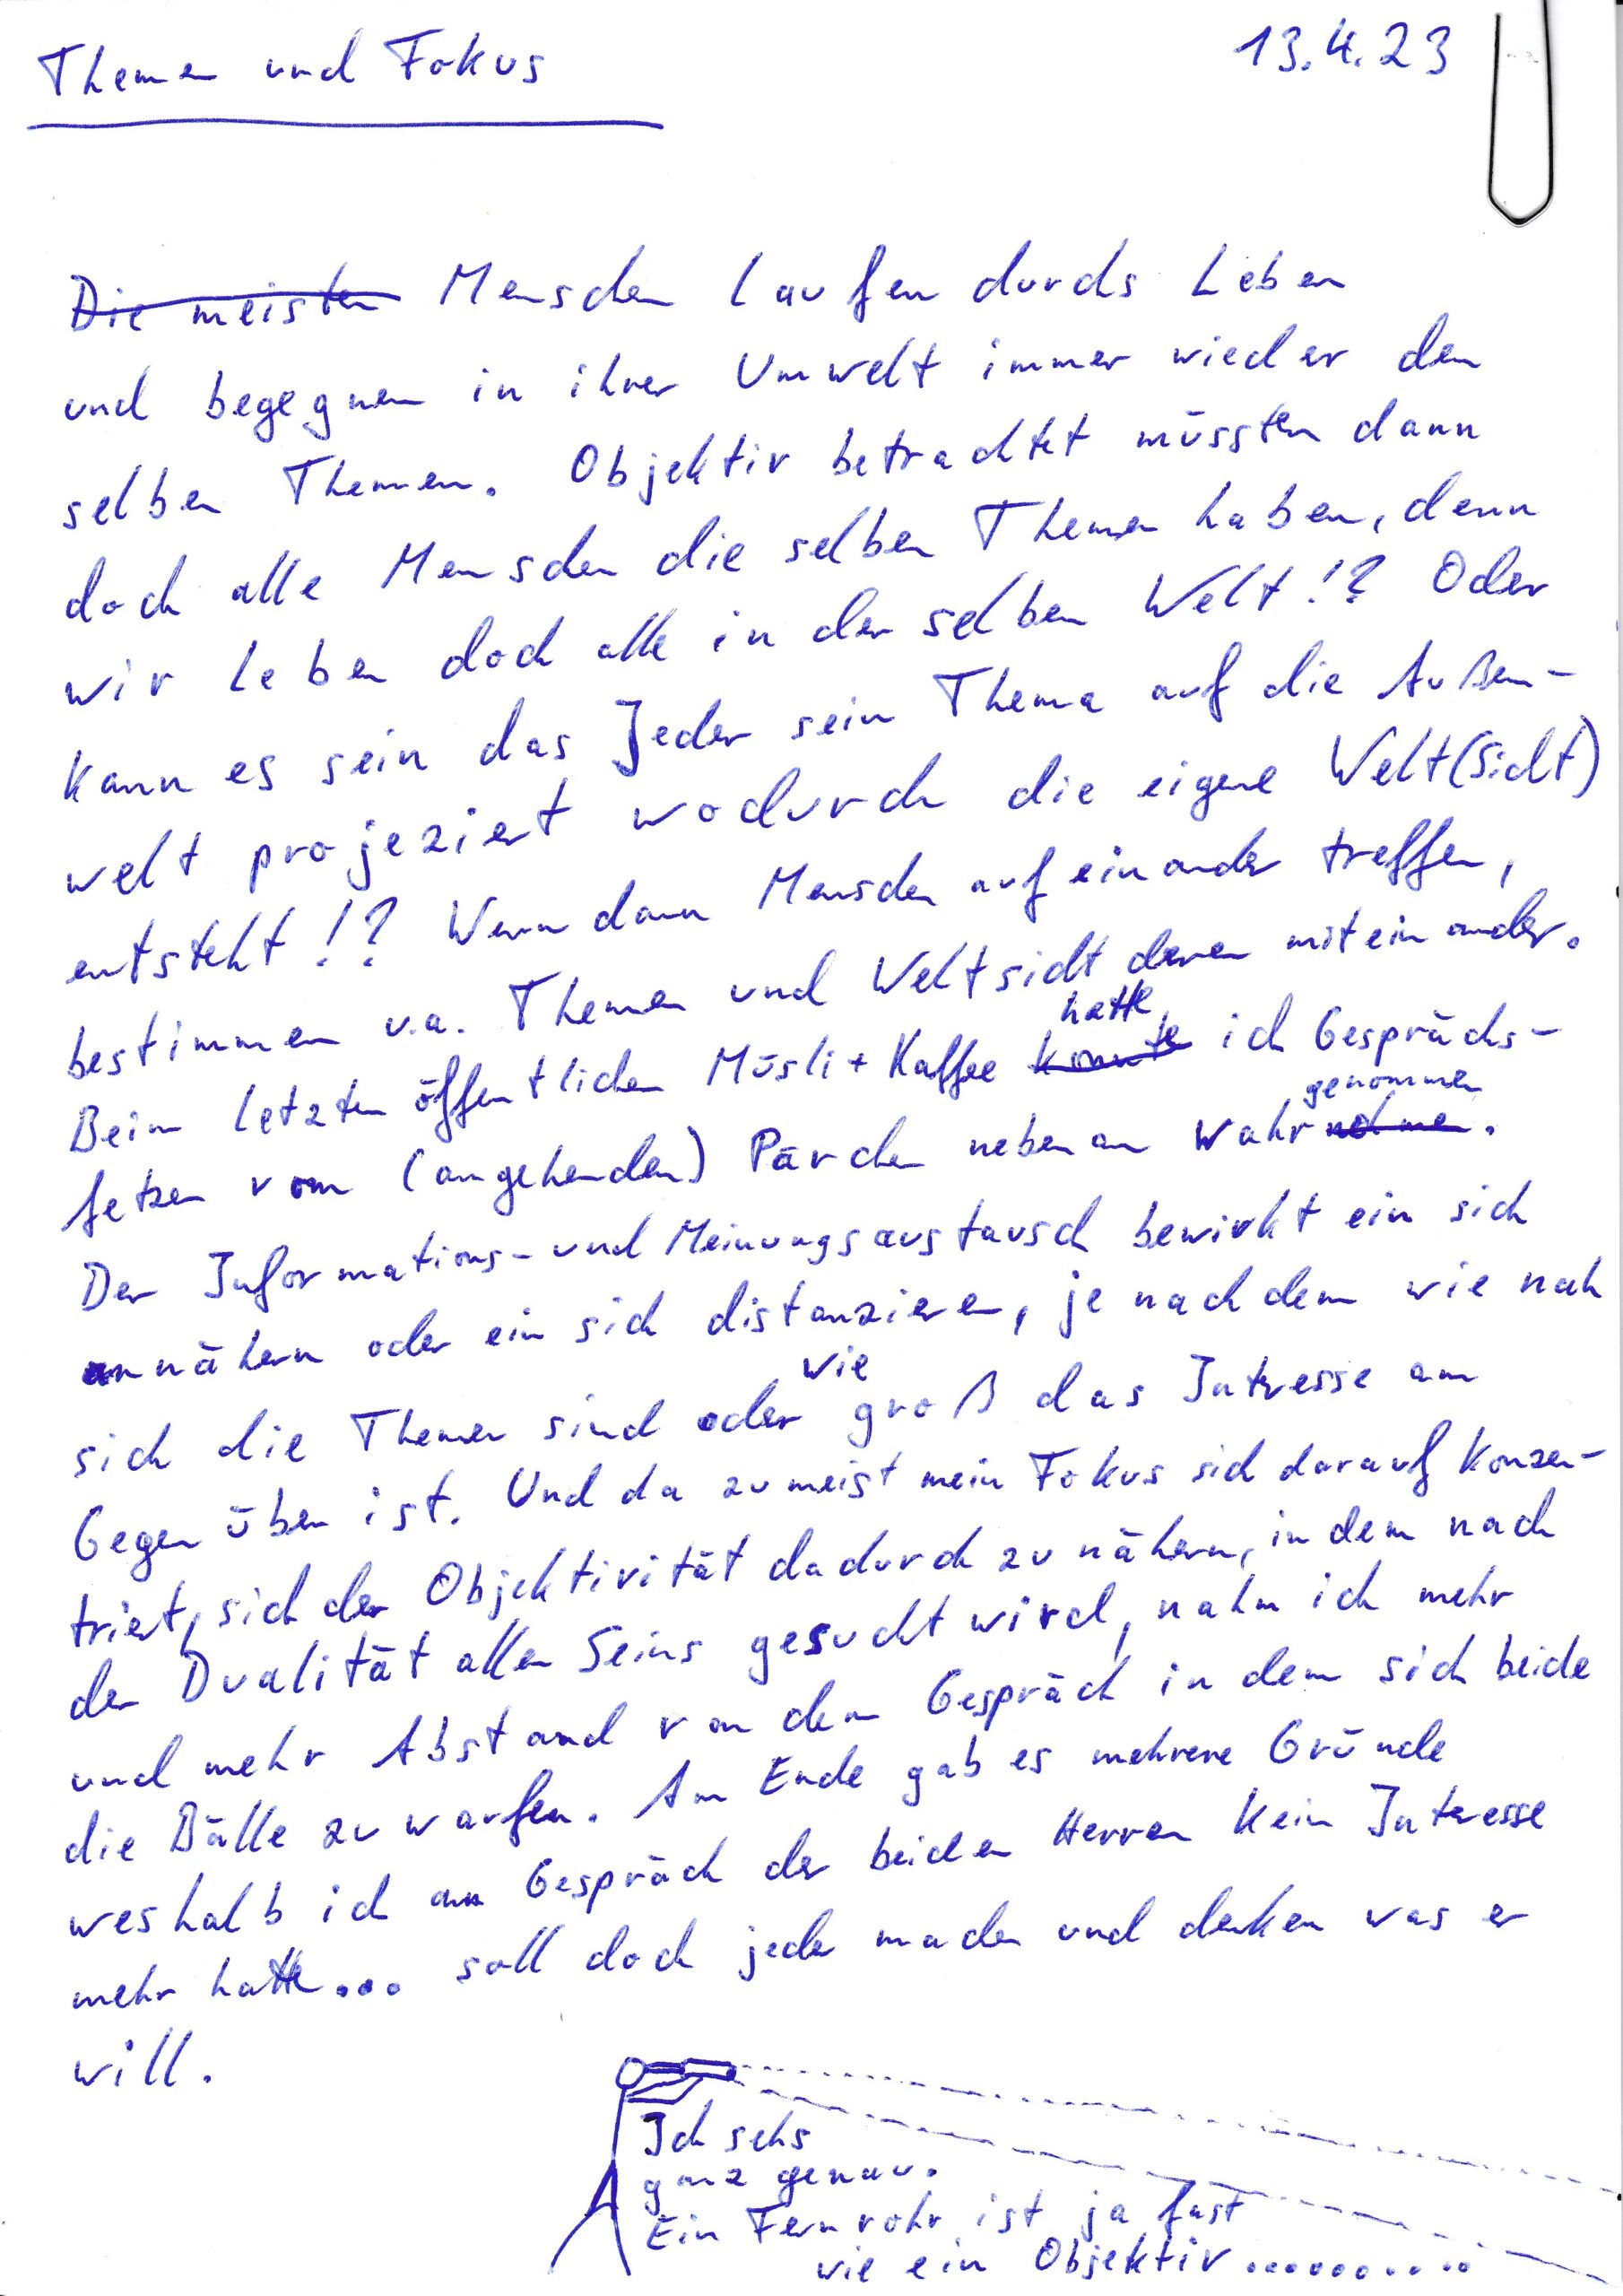 Themen und Fokus
13.4.23
Die meisten Menschen laufen durchs Leben
und begegnen in ihrer Umwelt immer wieder den
selben Themen. Objektiv betrachtet müssten dann
doch alle Menschen die selben Themen haben, denn
wir leben doch alle in der selben Welt!? Oder
kann es sein das Jeder sein Thema auf die Außen-
welt projeziert wodurch die eigene Welt(sicht)
entsteht!? Wenn dann Menschen aufeinander treffen,
bestimmen u.a. Themen und Weltsicht deren miteinander.
hatte
Beim letzten öffentlichen Müsli+Kaffee konnte ich Gesprächs-
genommen
fetzen vom (angehenden) Pärchen nebenan wahrnehmen.
Der Informations- und Meinungsaustausch bewirkt ein sich
annähern oder ein sich distanzieren, je nachdem wie nah
wie
sich die Themen sind oder groß das Intresse am
Gegenüber ist. Und da zumeist mein Fokus sich darauf konzen-
triert, sich der Objektivität dadurch zu nähern, in dem nach
der Dualität allen Seins gesucht wird, nahm ich mehr
und mehr Abstand von dem Gespräch in dem sich beide
die Bälle zu warfen. Am Ende gab es mehrere Gründe
weshalb ich am Gespräch der beiden Herren kein Intresse
mehr hatte... soll doch jeder machen und denken was er
will.
Ich sehs
ganz genau.
Ein Fernrohr ist ja fast
wie ein Objektiv..........